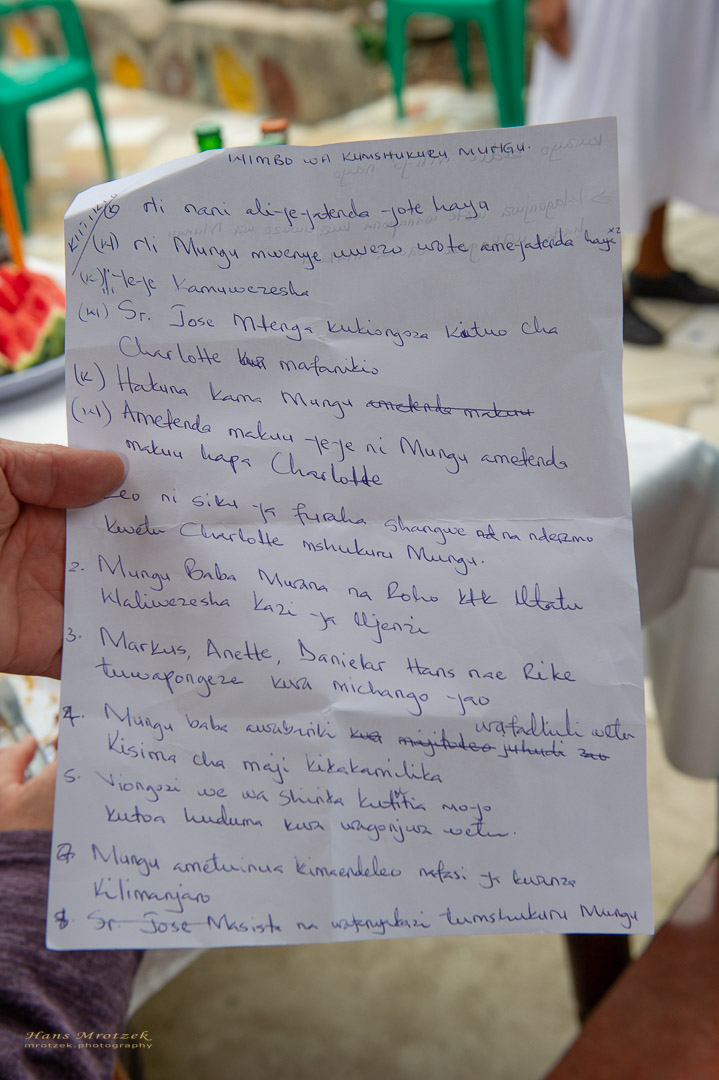 WIMBO WA KUMSHUKURU MUNGU.
Kiitikio
(K) Ni nani ali-ye-yatenda yote haya
(W) Ni Mungu mwenye uwezo wote ameyatenda haya x2
(K) Je-je Kamuwezesha
(W) Sr. Jose Mtenga kukiongoza kituo cha
Charlotte kwa mafanikio
(K) Hakuna kama Mungu ametenda makuu
(W) Ametenda makuu ye-ye ni Mungu ametenda
makuu hapa Charlotte
Leo ni siku ya furaha shangwe na nderemo
kwetu Charlotte mshukuru Mungu.
2. Mungu Baba Mwana na Roho Mtk Utatu
Waliwezesha kazi ya Ujenzi
3. Markus, Anette, Danielar Hans nae Rike
tuwapongeze kwa michango yao
4. Mungu baba awabariki wafadhili wetu
kwa juhudi zao
Kisima cha maji kikakamilika
5. Viongozi we wa shirika kutitia mo-yo
kutoa huduma kwa wagonjwa wetu.
Mungu ametuinua kimaendeleo nafasi ya kwanza
Kilimanjaro
8 Sr. Jose Masista na wafanyakazi tumshukuru Mungu
Hans Mrotzek
mrotzek.photography